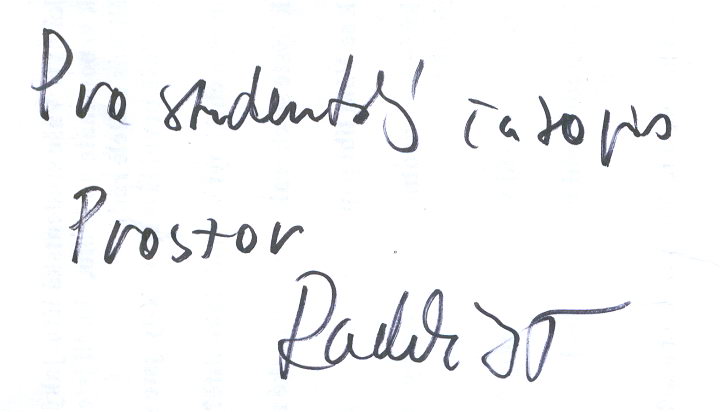 Pro studentský časopis
Prostor
Radek